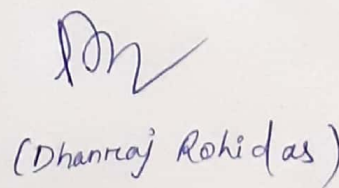 (Dhanraj Rohidas)